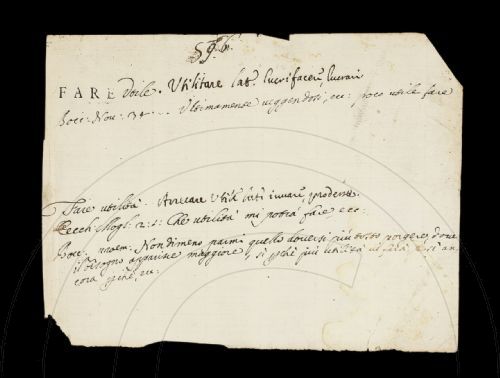 59.6.
FARE Utile. Utilitare Lat. Lucrifacere, Lucrari
Bocc: Nov: 34 ... Ultimamente veggendosi, ec: poco utile fare
Fare utilità. Arrecare Utile Lat: iuvare, prodesse
Cecch: Mogl: 2:1: Che utilità mi potrà fare ec:
Bocc: Nondimeno parmi quello doversi più tosto porgere, dove
il bisogno apparisce maggiore, sì perchè più utilità vi farà e sì an
cora perchè, ec: